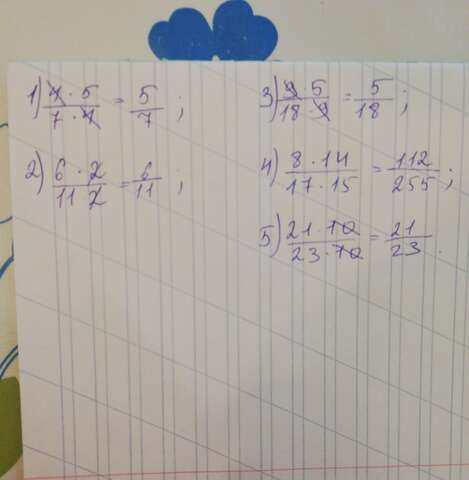 1) 4 · 5 / 7 · 4 = 5 / 7 ;
2) 6 · 2 / 11 2 = 6 / 11 ;
3) 9 5 / 18 · 9 = 5 / 18 ;
4) 8 · 14 / 17 · 15 = 112 / 255 ;
5) 21 · 10 / 23 · 10 = 21 / 23 .